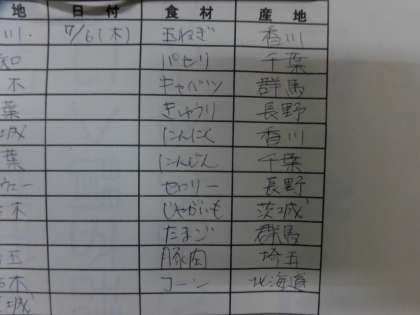 地 日付 食材 産地
川. 7/6(木) 玉ねぎ 香川
知 パセリ 千葉
木 キャベツ 群馬
葉 きゅうり 長野
城 にんにく 香川
葉 にんじん 千葉
ウェー セロリー 長野
木 じゃがいも 茨城
たまご 群馬
玉 豚肉 埼玉
木 コーン 北海道
城